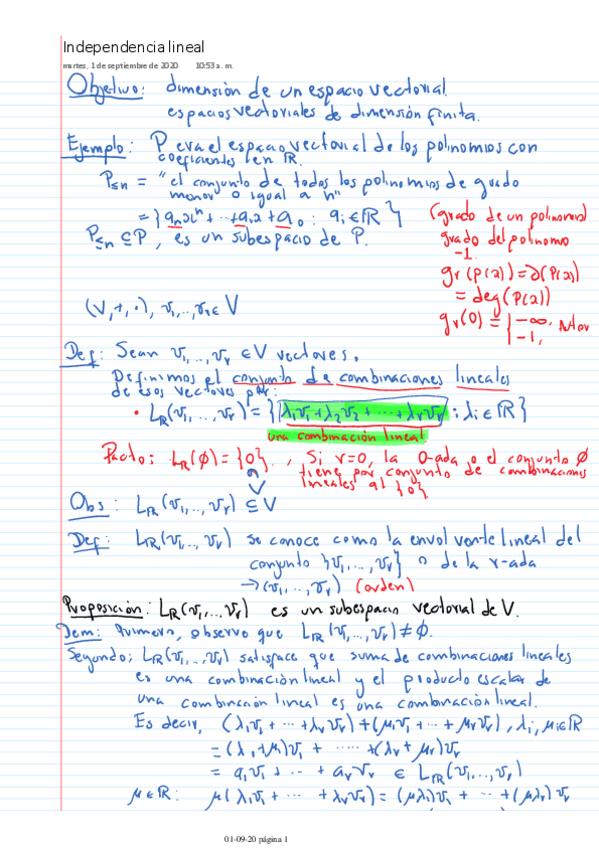 Independencia lineal
martes, 1 de septiembre de 2020 10:53 a. m.
Objetivo: dimensión de un espacio vectorial.
espacios vectoriales de dimensión finita.
Ejemplo: P era el espacio vectorial de los polinomios con
coeficientes en ℝ.
P≤n = "el conjunto de todos los polinomios de grado
menor o igual a n"
= {aₙxⁿ + ··· + a₁x + a₀ : aᵢ ∈ ℝ}
P≤n ⊆ P, es un subespacio de P.
(grado de un polinomio)
grado del polinomio
-1.
gr(p(x)) = ∂(P(x))
= deg(P(x))
gr(0) = { -∞,
-1,
(V,+,·), v₁,..,vᵣ ∈ V
Def: Sean v₁,..,vᵣ ∈ V vectores.
Definimos el conjunto de combinaciones lineales
de esos vectores por:
• Lℝ(v₁,..,vᵣ) = {λ₁v₁+λ₂v₂+···+λᵣvᵣ ; λᵢ ∈ ℝ}
una combinación lineal
Pacto: Lℝ(∅) = {0}., Si r=0, la 0-ada o el conjunto ∅
tiene por conjunto de combinaciones
lineales al {0}
∩
V
Obs: Lℝ(v₁,..,vᵣ) ⊆ V
Def: Lℝ(v₁,..,vᵣ) se conoce como la envolvente lineal del
conjunto {v₁,...,vᵣ} o de la r-ada
→(v₁,..,vᵣ) (orden)
Proposición: Lℝ(v₁,...vᵣ) es un subespacio vectorial de V.
Dem: Primero, observo que Lℝ(v₁,..,vᵣ) ≠ ∅.
Segundo; Lℝ(v₁,..,vᵣ) satisface que suma de combinaciones lineales
es una combinación lineal y el producto escalar de
una combinación lineal es una combinación lineal.
Es decir, (λ₁v₁+ ··· +λᵣvᵣ)+(μ₁v₁+ ··· + μᵣvᵣ), λᵢ, μᵢ∈ℝ
= (λ₁+μ₁)v₁ + ····· +(λᵣ+ μᵣ)vᵣ
= a₁v₁ + ·· + aᵣvᵣ ∈ Lℝ(v₁,...,vᵣ)
μ∈ℝ: μ(λ₁v₁+ ··· + λᵣvᵣ) = (μλ₁)v₁ + ·· +(μλᵣ)vᵣ
01-09-20 página 1